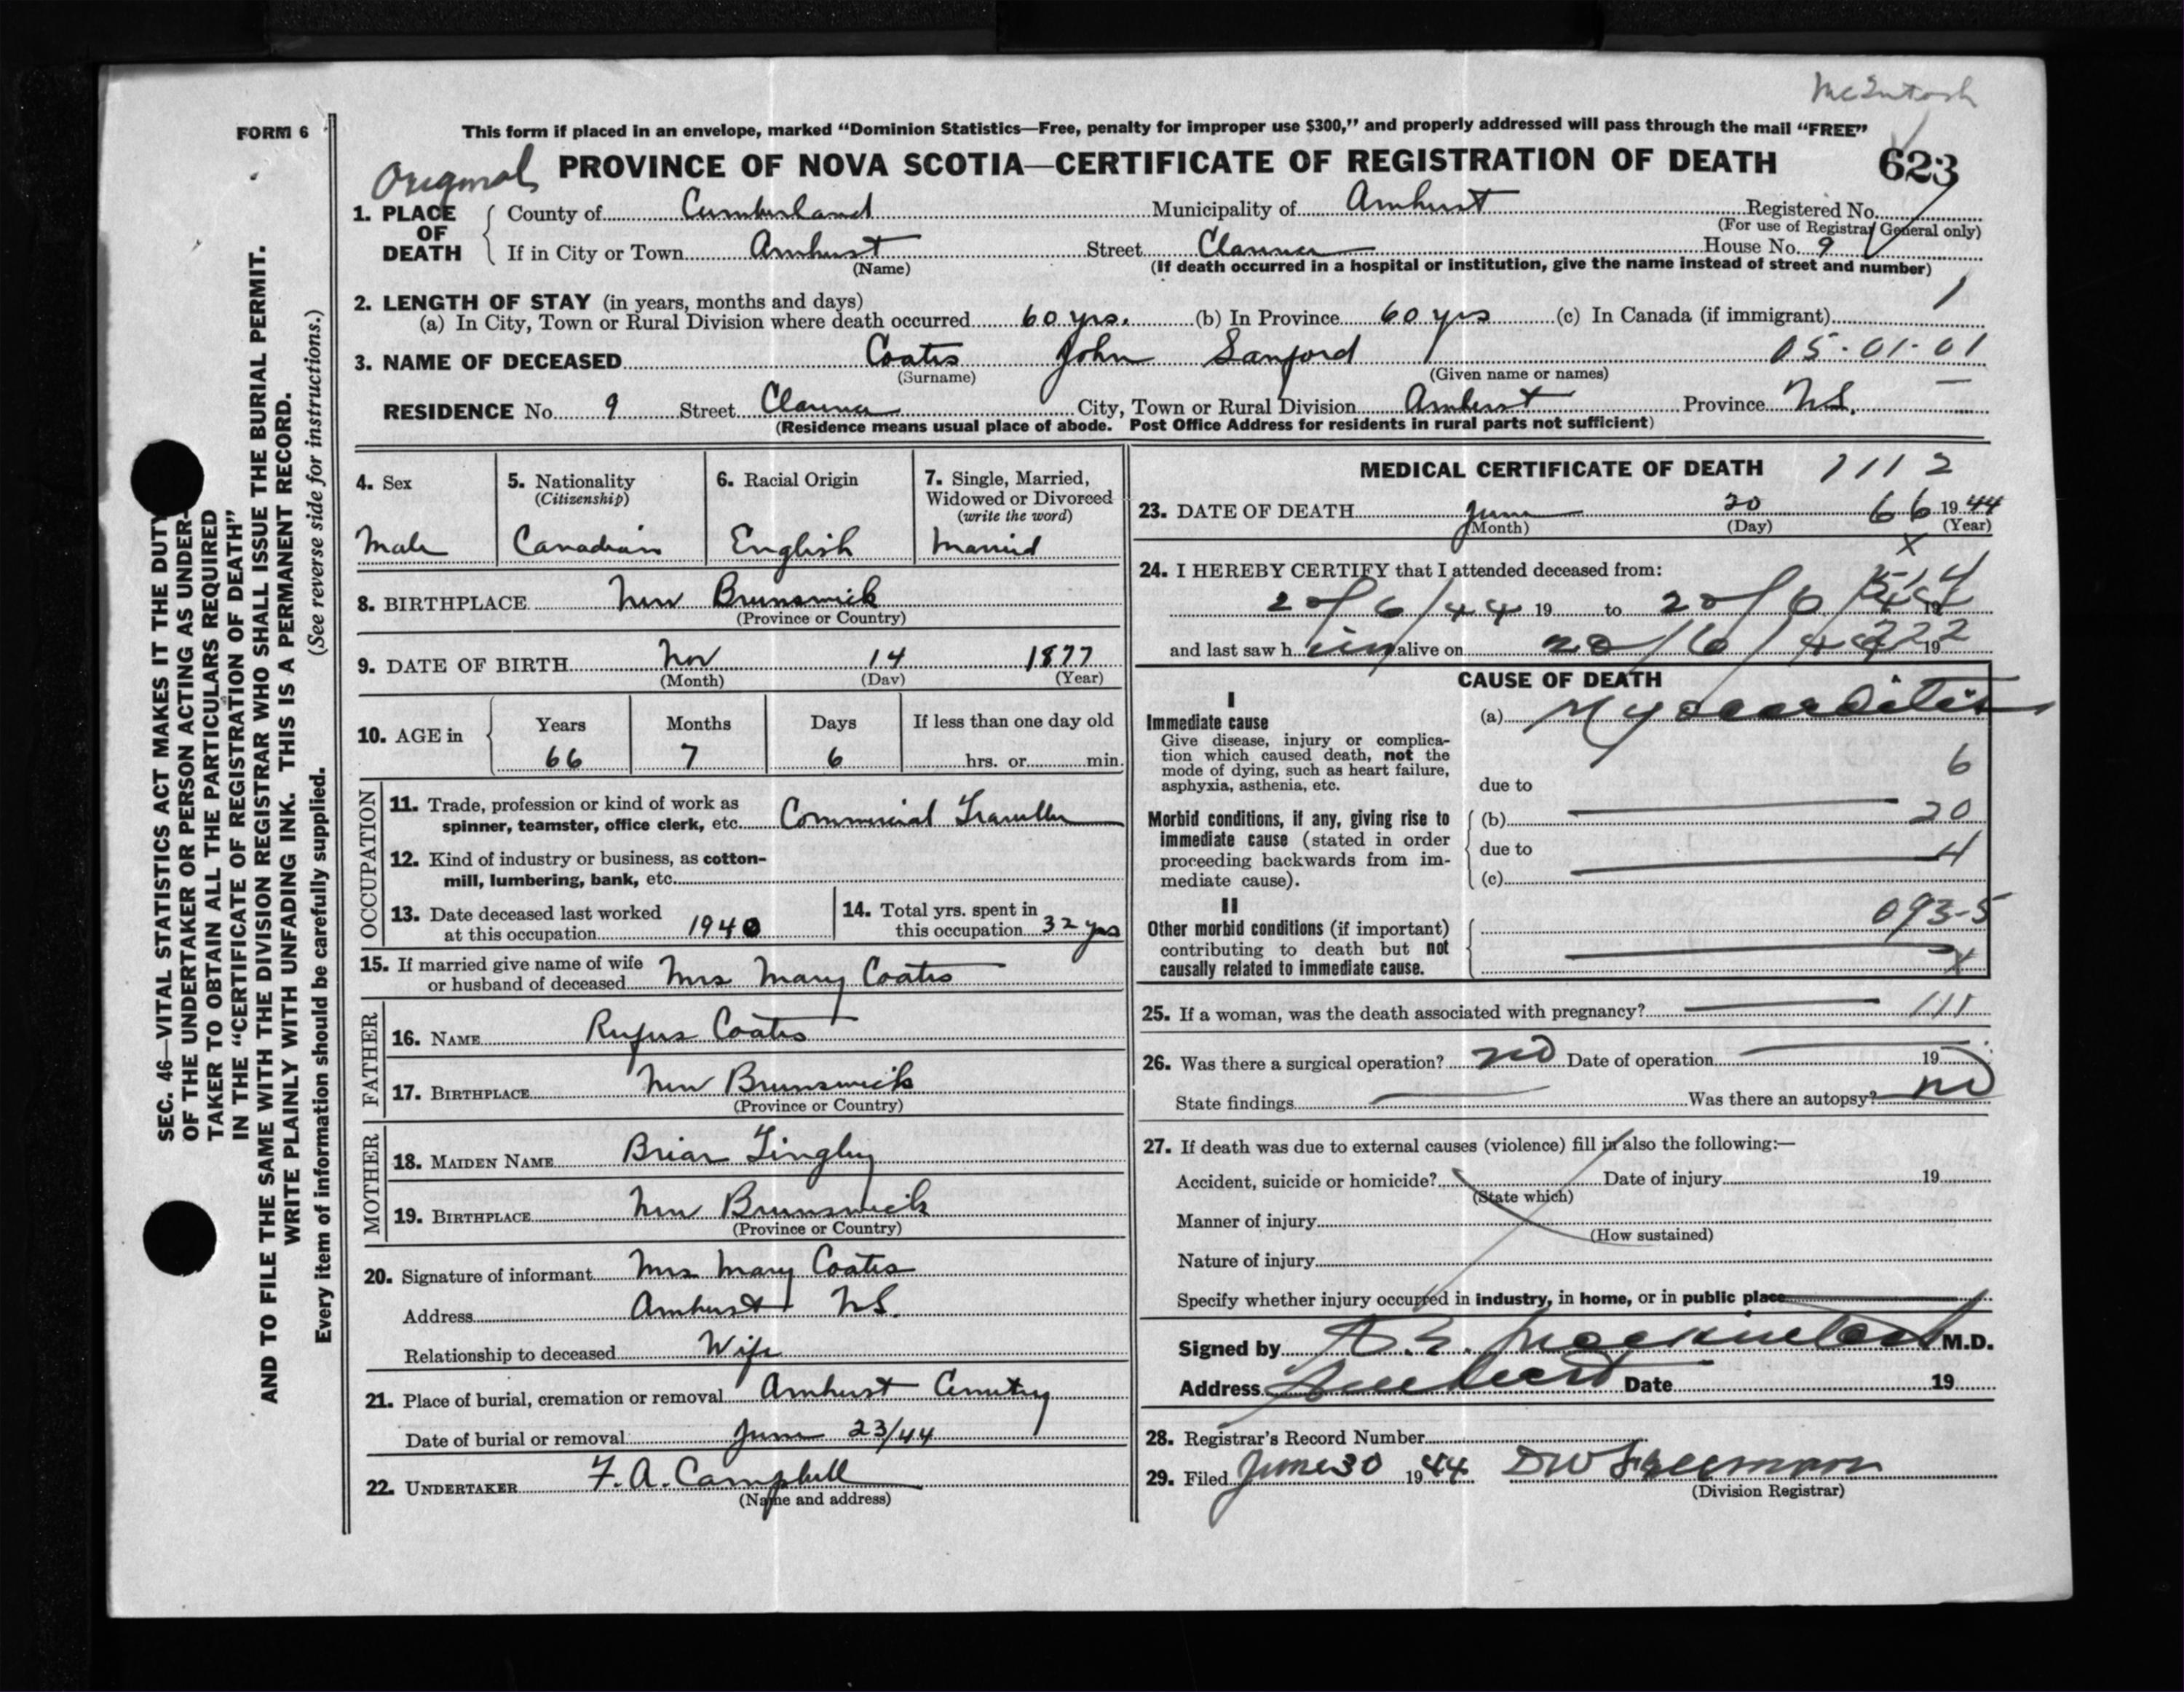 McIntosh
FORM 6
This form if placed in an envelope, marked “Dominion Statistics—Free, penalty for improper use $300,” and properly addressed will pass through the mail “FREE”
Original PROVINCE OF NOVA SCOTIA—CERTIFICATE OF REGISTRATION OF DEATH 623
1. PLACE OF DEATH County of Cumberland Municipality of Amherst Registered No.
(For use of Registrar General only)
If in City or Town Amherst Street Clarence House No. 9
(Name) (If death occurred in a hospital or institution, give the name instead of street and number)
2. LENGTH OF STAY (in years, months and days) 1
(a) In City, Town or Rural Division where death occurred 60 yrs. (b) In Province 60 yrs (c) In Canada (if immigrant)
3. NAME OF DECEASED Coates John Sanford 05-01-01
(Surname) (Given name or names)
RESIDENCE No. 9 Street Clarence City, Town or Rural Division Amherst Province N.S.
(Residence means usual place of abode. Post Office Address for residents in rural parts not sufficient)
4. Sex 5. Nationality (Citizenship) 6. Racial Origin 7. Single, Married, Widowed or Divorced (write the word)
Male Canadian English Married
8. BIRTHPLACE New Brunswick
(Province or Country)
9. DATE OF BIRTH Nov 14 1877
(Month) (Day) (Year)
10. AGE in Years Months Days If less than one day old
66 7 6 hrs. or min.
OCCUPATION
11. Trade, profession or kind of work as
spinner, teamster, office clerk, etc. Commercial Traveller
12. Kind of industry or business, as cotton-
mill, lumbering, bank, etc.
13. Date deceased last worked
at this occupation 1940
14. Total yrs. spent in
this occupation 32 yrs
15. If married give name of wife
or husband of deceased Mrs Mary Coates
FATHER
16. NAME Rufus Coates
17. BIRTHPLACE New Brunswick
(Province or Country)
MOTHER
18. MAIDEN NAME Briar Tingley
19. BIRTHPLACE New Brunswick
(Province or Country)
20. Signature of informant Mrs Mary Coates
Address Amherst N.S.
Relationship to deceased Wife
21. Place of burial, cremation or removal Amherst Cemetry
Date of burial or removal June 23/44
22. UNDERTAKER F. A. Campbell
(Name and address)
MEDICAL CERTIFICATE OF DEATH 1112
23. DATE OF DEATH June 20 66 1944
(Month) (Day) (Year)
x
24. I HEREBY CERTIFY that I attended deceased from:
20/6/44 19 to 20/6/ 19
and last saw h im alive on 20/6/44 19
CAUSE OF DEATH
I
Immediate cause
Give disease, injury or complica-
tion which caused death, not the
mode of dying, such as heart failure,
asphyxia, asthenia, etc.
(a) Myocarditis
6
due to
Morbid conditions, if any, giving rise to
immediate cause (stated in order
proceeding backwards from im-
mediate cause).
(b) 20
due to 4
(c)
II
Other morbid conditions (if important)
contributing to death but not
causally related to immediate cause.
093-5
x
25. If a woman, was the death associated with pregnancy? 111
26. Was there a surgical operation? no Date of operation 19
State findings Was there an autopsy? no
27. If death was due to external causes (violence) fill in also the following:—
Accident, suicide or homicide? Date of injury 19
(State which)
Manner of injury
(How sustained)
Nature of injury
Specify whether injury occurred in industry, in home, or in public place
Signed by M.D.
Address Amherst Date 19
28. Registrar's Record Number
29. Filed June 30 1944 D W Freeman
(Division Registrar)
SEC. 46—VITAL STATISTICS ACT MAKES IT THE DUTY
OF THE UNDERTAKER OR PERSON ACTING AS UNDER-
TAKER TO OBTAIN ALL THE PARTICULARS REQUIRED
IN THE “CERTIFICATE OF REGISTRATION OF DEATH”
AND TO FILE THE SAME WITH THE DIVISION REGISTRAR WHO SHALL ISSUE THE BURIAL PERMIT.
WRITE PLAINLY WITH UNFADING INK. THIS IS A PERMANENT RECORD.
Every item of information should be carefully supplied. (See reverse side for instructions.)